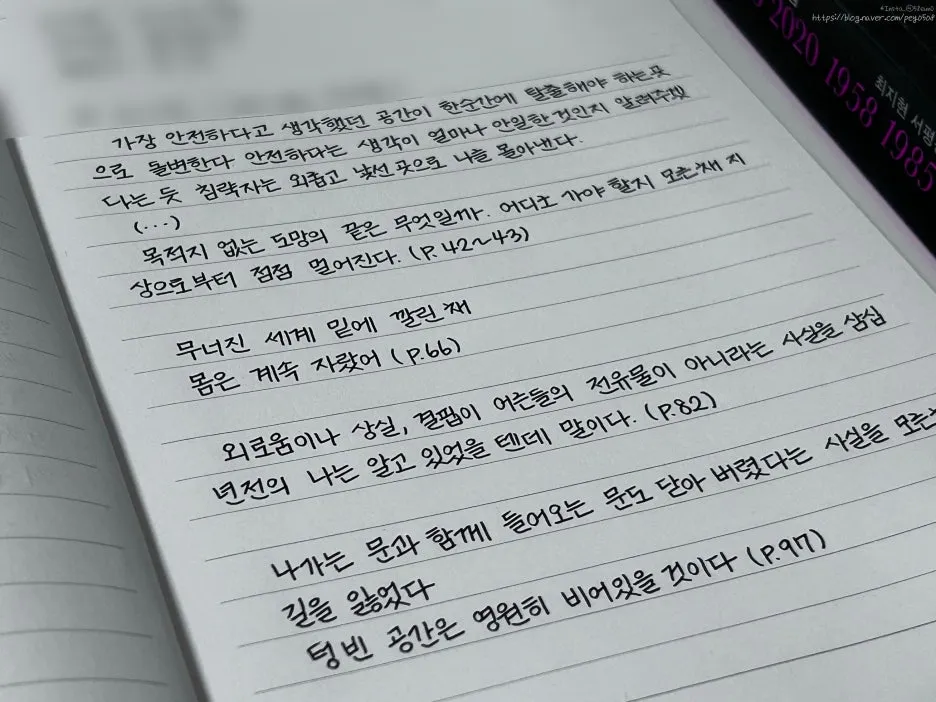 *Insta_@58am0
https://blog.naver.com/peyo508
2020 1958 1985
최지현 서평
가장 안전하다고 생각했던 공간이 한순간에 탈출해야 하는 곳
으로 돌변한다 안전하다는 생각이 얼마나 안일한 것인지 알려주겠
다는 듯 침략자는 외롭고 낯선 곳으로 나를 몰아낸다.
(...)
목적지 없는 도망의 끝은 무엇일까. 어디로 가야 할지 모른 채 지
상으로부터 점점 멀어진다. (P. 42~43)
무너진 세계 밑에 깔린 채
몸은 계속 자랐어 (P.66)
외로움이나 상실, 결핍이 어른들의 전유물이 아니라는 사실을 삼십
년전의 나는 알고 있었을 텐데 말이다. (P.82)
나가는 문과 함께 들어오는 문도 닫아 버렸다는 사실을 모른
길을 잃었다
텅 빈 공간은 영원히 비어있을 것이다 (P.97)